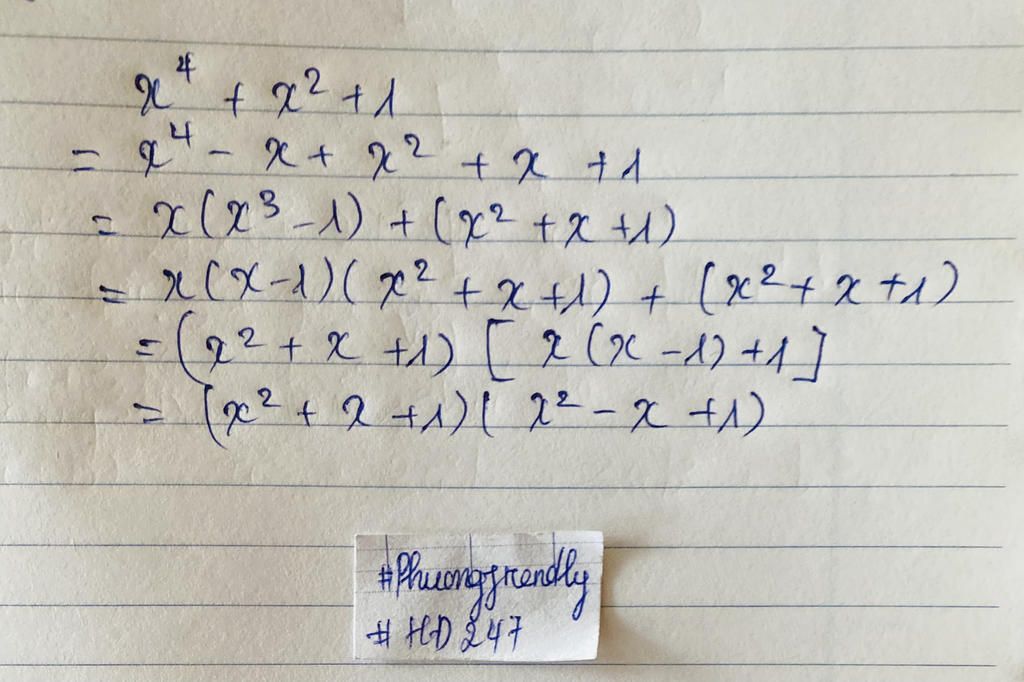 x⁴ + x² + 1
= x⁴ - x + x² + x + 1
= x(x³ - 1) + (x² + x + 1)
= x(x-1)(x² + x + 1) + (x² + x + 1)
= (x² + x + 1) [x(x - 1) + 1]
= (x² + x + 1)(x² - x + 1)
#Phuongfrendly
# HD 247